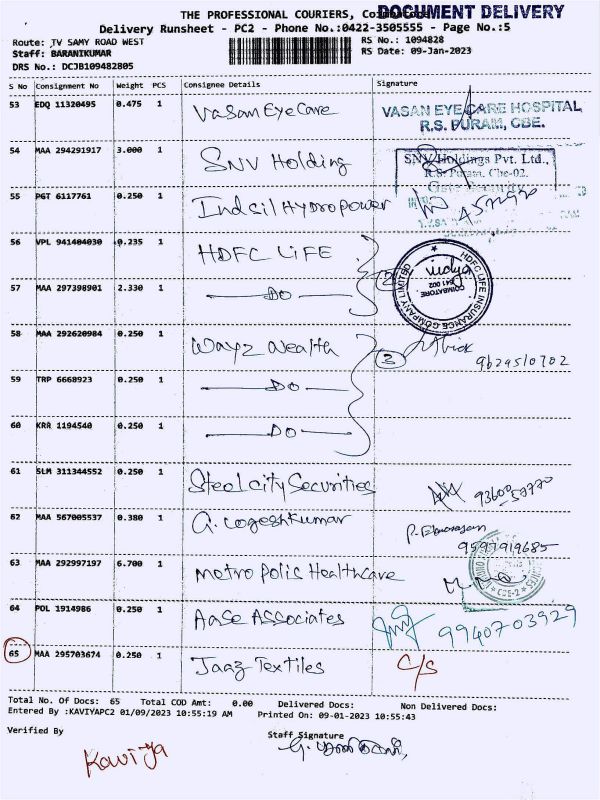 THE PROFESSIONAL COURIERS,
DOCUMENT DELIVERY
Delivery Runsheet - PC2 - Phone No.:0422-3505555 - Page No.:5
Route: TV SAMY ROAD WEST
RS No.: 1094828
Staff: BARANIKUMAR
RS Date: 09-Jan-2023
DRS No.: DCJB109482805
S No Consignment No Weight PCS Consignee Details Signature
53 EDQ 11320495 0.475 1 Vasan Eye Care
VASAN EYE CARE HOSPITAL
R.S. PURAM, CBE.
54 MAA 294291917 3.000 1 SNV Holding
SNV Holdings Pvt. Ltd.,
R.S. Puram, Cbe-02.
55 PGT 6117761 0.250 1 Indsil Hydropower
56 VPL 941404030 0.235 1 HDFC LiFE
HDFC LIFE INSURANCE COMPANY LIMITED
COIMBATORE
641 002
Vidya
2
57 MAA 297398901 2.330 1 DO
58 MAA 292620984 0.250 1 Wayz Wealth
3
9629510702
59 TRP 6668923 0.250 1 DO
60 KRR 1194540 0.250 1 DO
61 SLM 311344552 0.250 1 Steel City Securities
62 MAA 567005537 0.380 1 G. Logeshkumar
9597919685
63 MAA 292997197 6.700 1 Metropolis Healthcare
CBE-2
64 POL 1914986 0.250 1 Aase Associates
9940703929
65 MAA 295703674 0.250 1 Jaaz Textiles C/S
Total No. Of Docs: 65 Total COD Amt: 0.00 Delivered Docs: Non Delivered Docs:
Entered By :KAVIYAPC2 01/09/2023 10:55:19 AM Printed On: 09-01-2023 10:55:43
Verified By
Staff Signature
Kaviya